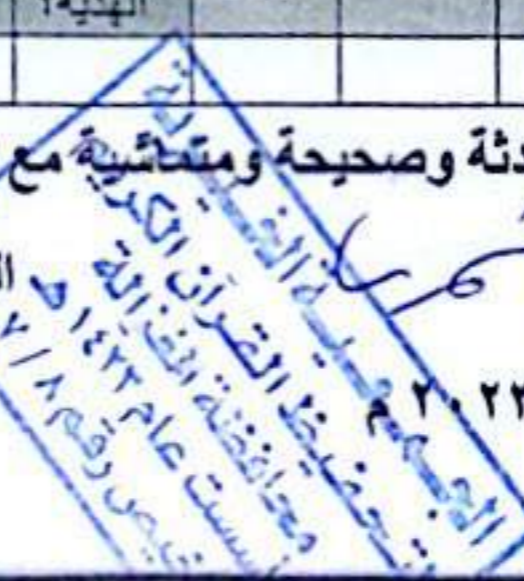 الهدية؟
دثة وصحيحة ومتماشية مع
الجمعية الخيرية
لتحفيظ القرآن الكريم
محافظة الغزالة
أسست عام ١٤٢٣ هـ
رقم ٧ / ٨
٢٠٢٢ م